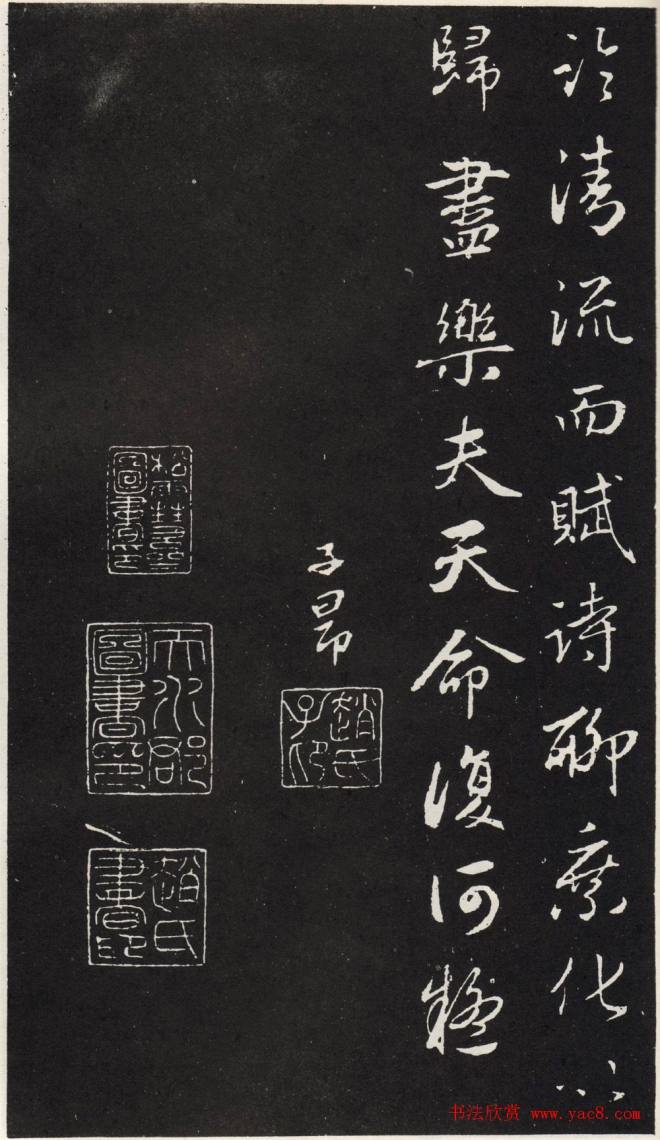 臨清流而賦詩聊乘化以
歸盡樂夫天命復何疑
子昂
趙氏子昂
松雪齋圖書印
天水郡圖書印
趙氏書印
书法欣赏 www.yac8.com